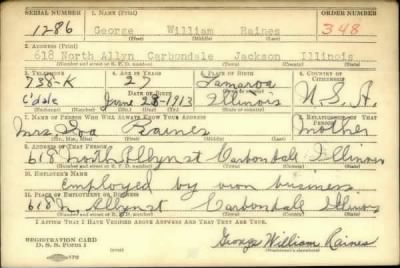 SERIAL NUMBER 1. NAME (Print) ORDER NUMBER
1286 George William Raines 348
(First) (Middle) (Last)
2. ADDRESS (Print)
618 North Allyn Carbondale Jackson Illinois
(Number and street or R. F. D. number) (Town) (County) (State)
3. TELEPHONE 4. AGE IN YEARS 5. PLACE OF BIRTH 6. COUNTRY OF CITIZENSHIP
738-K 27 Tamaroa
DATE OF BIRTH
C'dale June 28-1913 Illinois U.S.A.
(Exchange) (Number) (Mo.) (Day) (Yr.) (State or country)
7. NAME OF PERSON WHO WILL ALWAYS KNOW YOUR ADDRESS 8. RELATIONSHIP OF THAT PERSON
Mrs Raines mother
(Mr., Mrs., Miss) (First) (Middle) (Last)
9. ADDRESS OF THAT PERSON
618 North Allyn st Carbondale Illinois
(Number and street or R. F. D. number) (Town) (County) (State)
10. EMPLOYER'S NAME
Employed by own business.
11. PLACE OF EMPLOYMENT OR BUSINESS
618 N. Allyn st Carbondale Illinois
(Number and street or R. F. D. number) (Town) (County) (State)
I AFFIRM THAT I HAVE VERIFIED ABOVE ANSWERS AND THAT THEY ARE TRUE.
REGISTRATION CARD
D. S. S. FORM 1 George William Raines
(Registrant's signature)